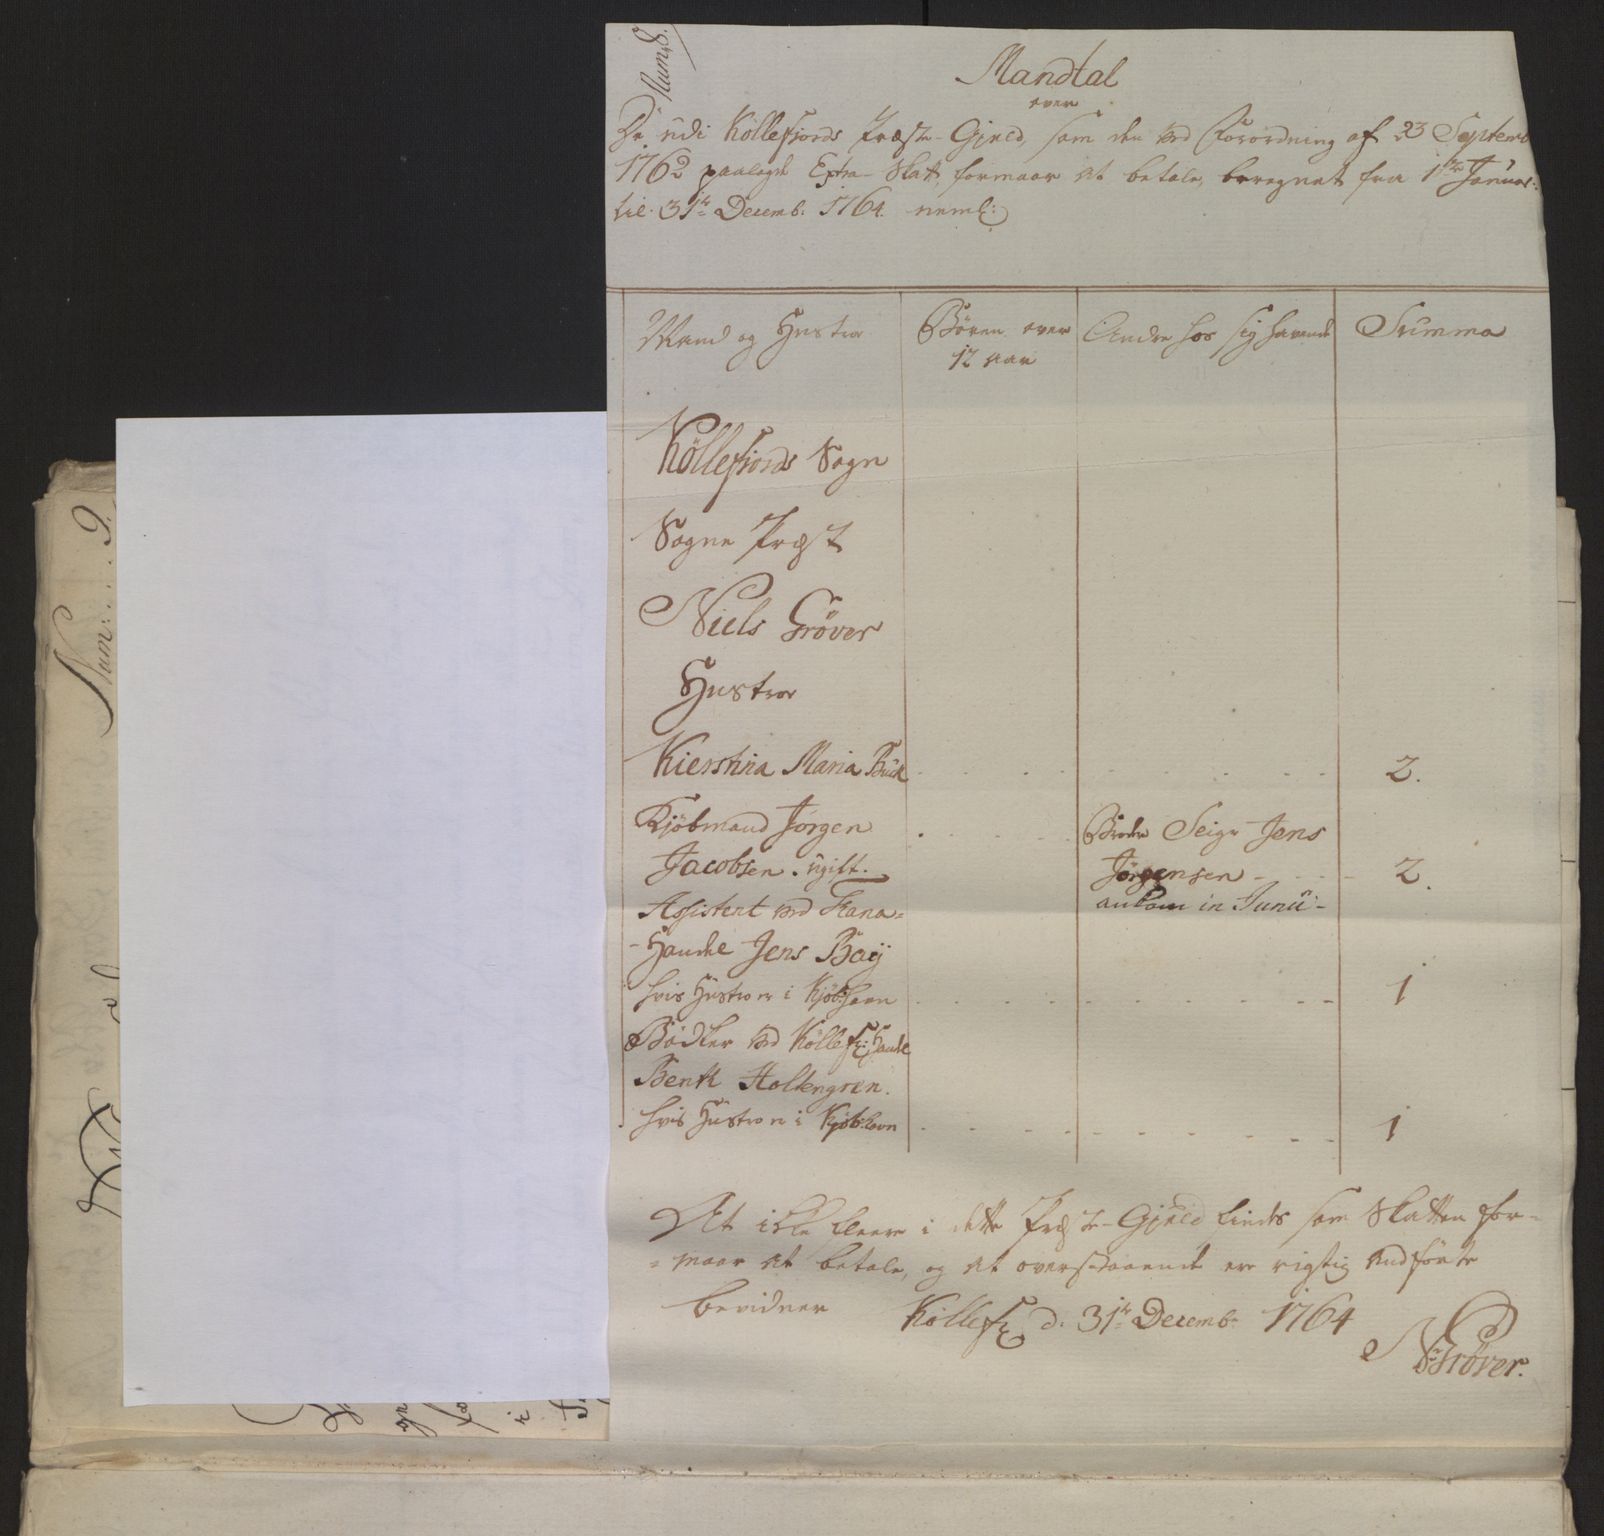 Num: 8.
Mandtal
over
De udi Köllefiords Præste-Gjæld, som den ved Forordning af 23 Septemb
1762 paalagde Extra-Skatt formaar at betale, beregnet fra 1te Januar:
til 31te Decemb: 1764. neml:
Mand og Hustroe
Börn over
12 aar
Andre hos sig havende
Summa
Köllefiords Sogn
Sogne Præst
Niels Tröver
Hustroe
Kierstina Maria 2.
Kjöbmand Jörgen
Broder Seigr Jens
Jacobsen. ugift.
Jörgensen 2.
Assistent ved
ankom in Junii
Handel Jens Baÿ
hvis Hustro er i Kjöb:havn 1
Bödker ved Köllef: Handel
Bent Holtengren.
hvis Hustro er i Kjöb:havn 1
At ikke fleere i dette Præste-Gjæld findes som Skatten for=
=maar at betale, og at overstaaende ere rigtig andförte
bevidner
Köllef: d: 31te Decemb: 1764
N Tröver.
Num: . . 9.